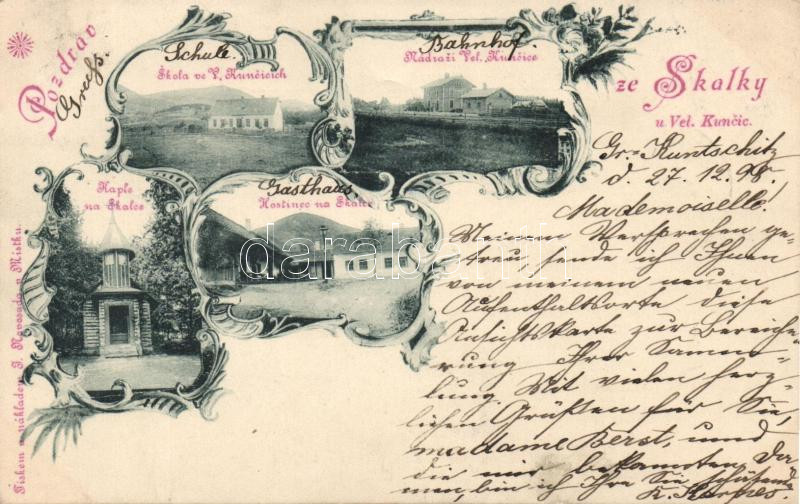 Pozdrav
Gruss.
ze Skalky
u Vel. Kunčic.
Schule.
Škola ve V. Kunčicích
Bahnhof.
Nádraží Vel. Kunčice
Kaple
na Skalce
Gasthaus
Hostinec na Skalce
Tiskem a nákladem J. Novosada v Místku.
darabanth.com
Gr. Kuntschitz
d. 27.12.98.
Mademoiselle!
Meinem Versprechen ge-
treu sende ich Ihnen
von meinem neuen
Aufenthaltsorte diese
Ansichtskarte zur Bereiche-
rung Ihrer Samm-
lung. Mit vielen herz-
lichen Grüßen für Sie,
madame Berst, und
die mir bekannten Da-
men, bin ich Ihr Sie schätzend